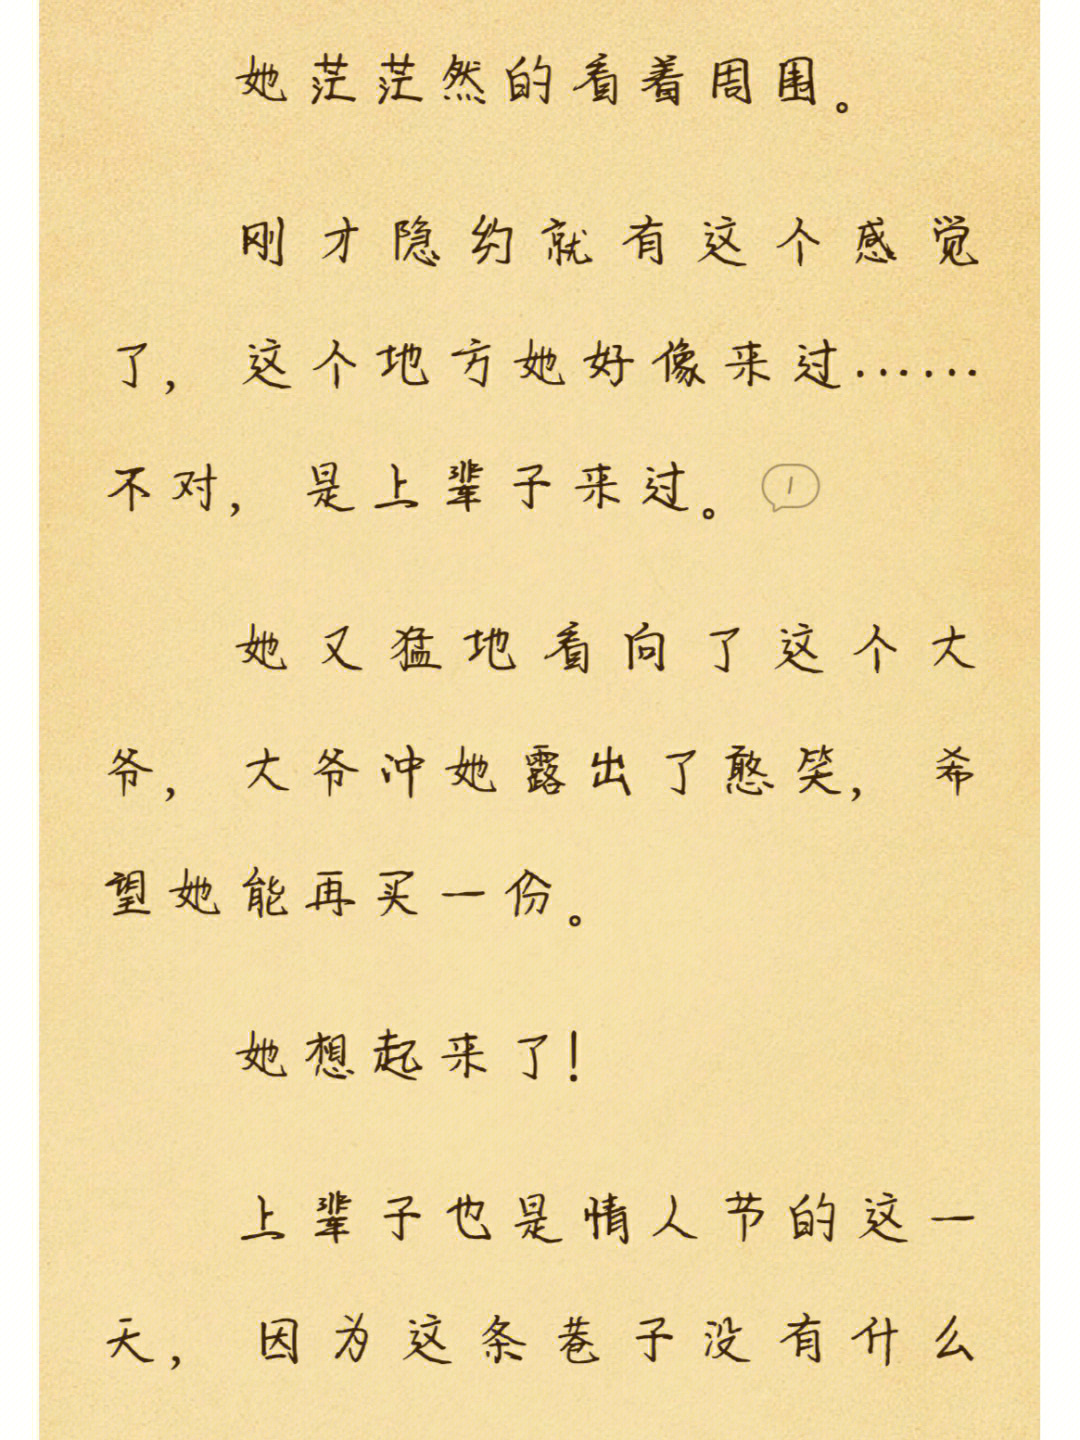 她茫茫然的看着周围。
刚才隐约就有这个感觉
了，这个地方她好像来过......
不对，是上辈子来过。 1
她又猛地看向了这个大
爷，大爷冲她露出了憨笑，希
望她能再买一份。
她想起来了！
上辈子也是情人节的这一
天，因为这条巷子没有什么